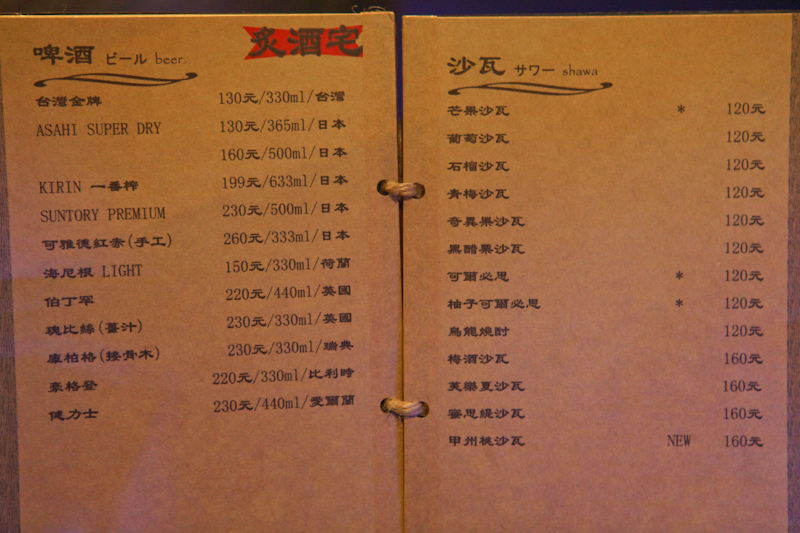 啤酒 ビール beer
炙酒宅
台灣金牌 130元/330ml/台灣
ASAHI SUPER DRY 130元/365ml/日本
160元/500ml/日本
KIRIN 一番榨 199元/633ml/日本
SUNTORY PREMIUM 230元/500ml/日本
可雅德紅赤(手工) 260元/333ml/日本
海尼根 LIGHT 150元/330ml/荷蘭
伯丁罕 220元/440ml/英國
瑰比絲(薑汁) 230元/330ml/英國
庫柏格(接骨木) 230元/330ml/瑞典
豪格登 220元/330ml/比利時
健力士 230元/440ml/愛爾蘭
沙瓦 サワー shawa
芒果沙瓦 * 120元
葡萄沙瓦 120元
石榴沙瓦 120元
青梅沙瓦 120元
奇異果沙瓦 120元
黑醋栗沙瓦 120元
可爾必思 * 120元
柚子可爾必思 * 120元
烏龍燒酎 120元
梅酒沙瓦 160元
芙樂夏沙瓦 160元
蜜思緹沙瓦 160元
甲州桃沙瓦 NEW 160元